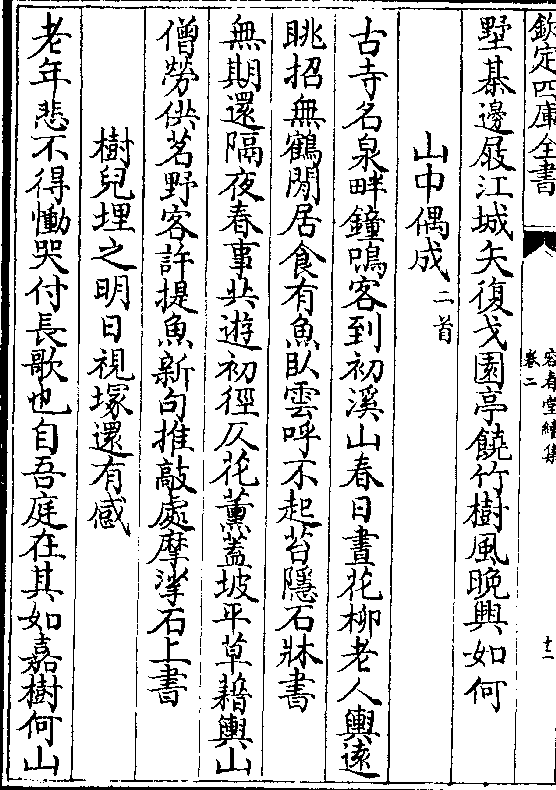 欽定四庫全書
容春堂續集
卷二
十二
墅棊邊屐江城矢復戈園亭饒竹樹風晚興如何
山中偶成二首
古寺名泉畔鐘鳴客到初溪山春日晝花柳老人輿遠
眺招無鶴閒居食有魚臥雲呼不起苔隱石牀書
無期還隔夜春事共遊初徑仄花薰蓋坡平草藉輿山
僧勞供茗野客許提魚新句推敲處摩挲石上書
樹兒埋之明日視塚還有感
老年悲不得慟哭付長歌也自吾庭在其如嘉樹何山